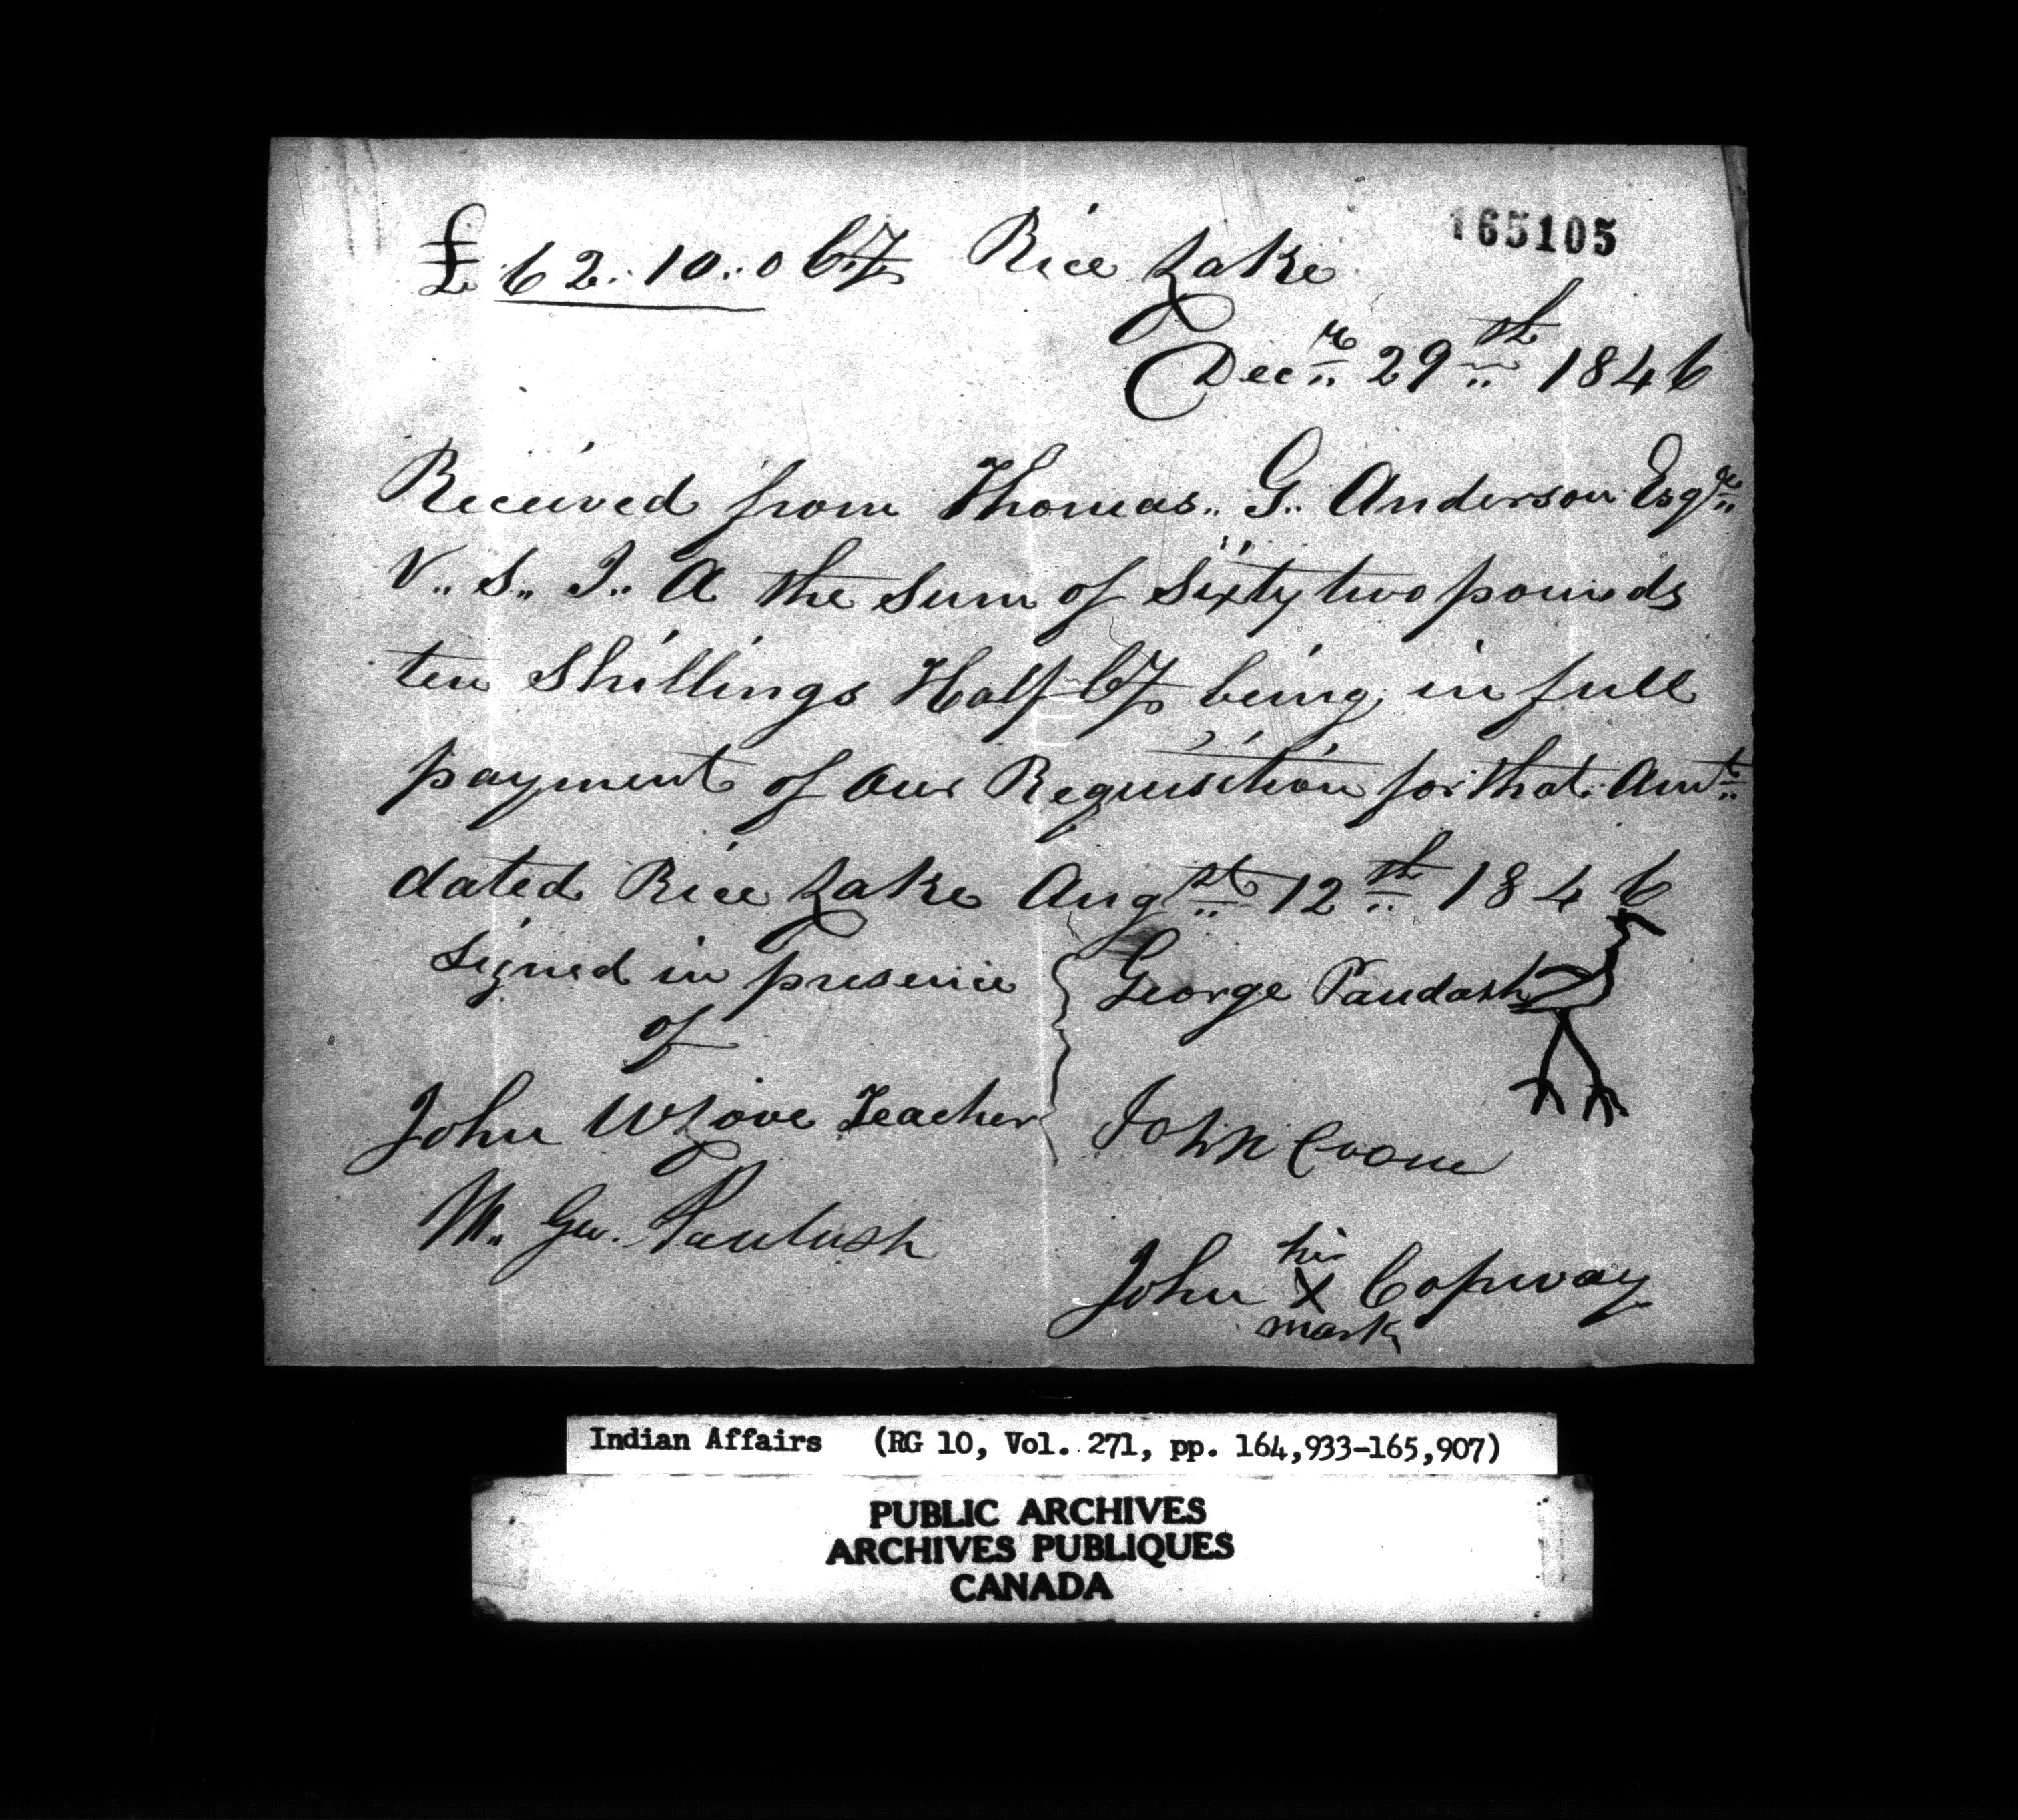 165105
£62..10..0 Cy Rice Lake
Decr 29th 1846
Received from Thomas.. G.. Anderson Esqre
V.. S.. I.. A the Sum of Sixty two pounds
ten Shillings Half Cy being in full
payment of our Requisition for that Amt
dated Rice Lake Augst 12th 1846
Signed in presence
of
George Paudash
John W Love Teacher
John Croow
M. Geo. Paudash
John his X mark Copway
Indian Affairs (RG 10, Vol. 271, pp. 164,933-165,907)
PUBLIC ARCHIVES
ARCHIVES PUBLIQUES
CANADA